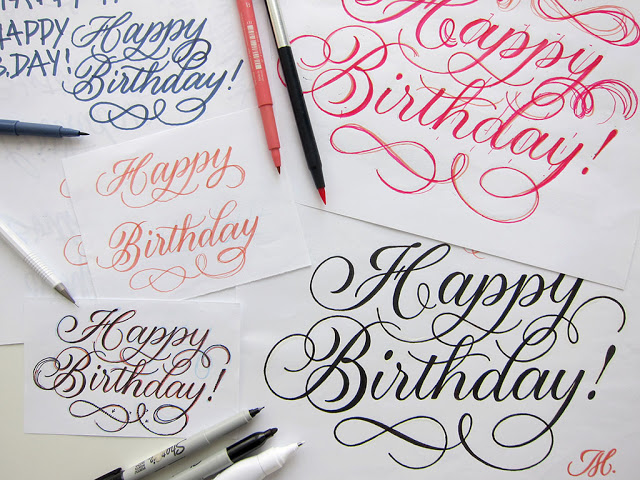 HAPPY
B.DAY!
Happy
Birthday!
Happy
Birthday!
Happy
Birthday
Happy
Birthday!
Happy
Birthday!
Sharpie
M.